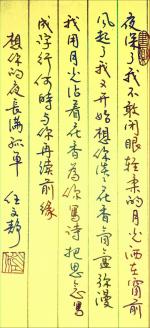 夜深了我不敢闭眼轻柔的月光洒在窗前
风起了我又开始想你淡淡花香气盈弥漫
我用月光沾着花香为你写诗把思念写
成字行何时与你再续前缘
想你的夜长满孤单 任文静